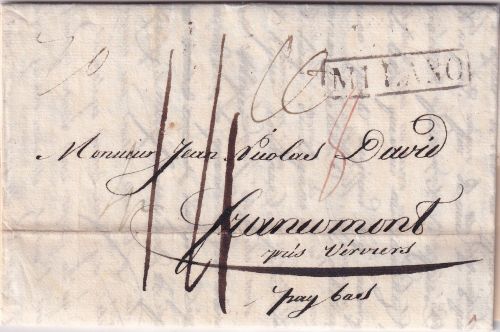 MILANO
8
Monsieur Jean Nicolas David
Francomont
près Verviers
pay bas